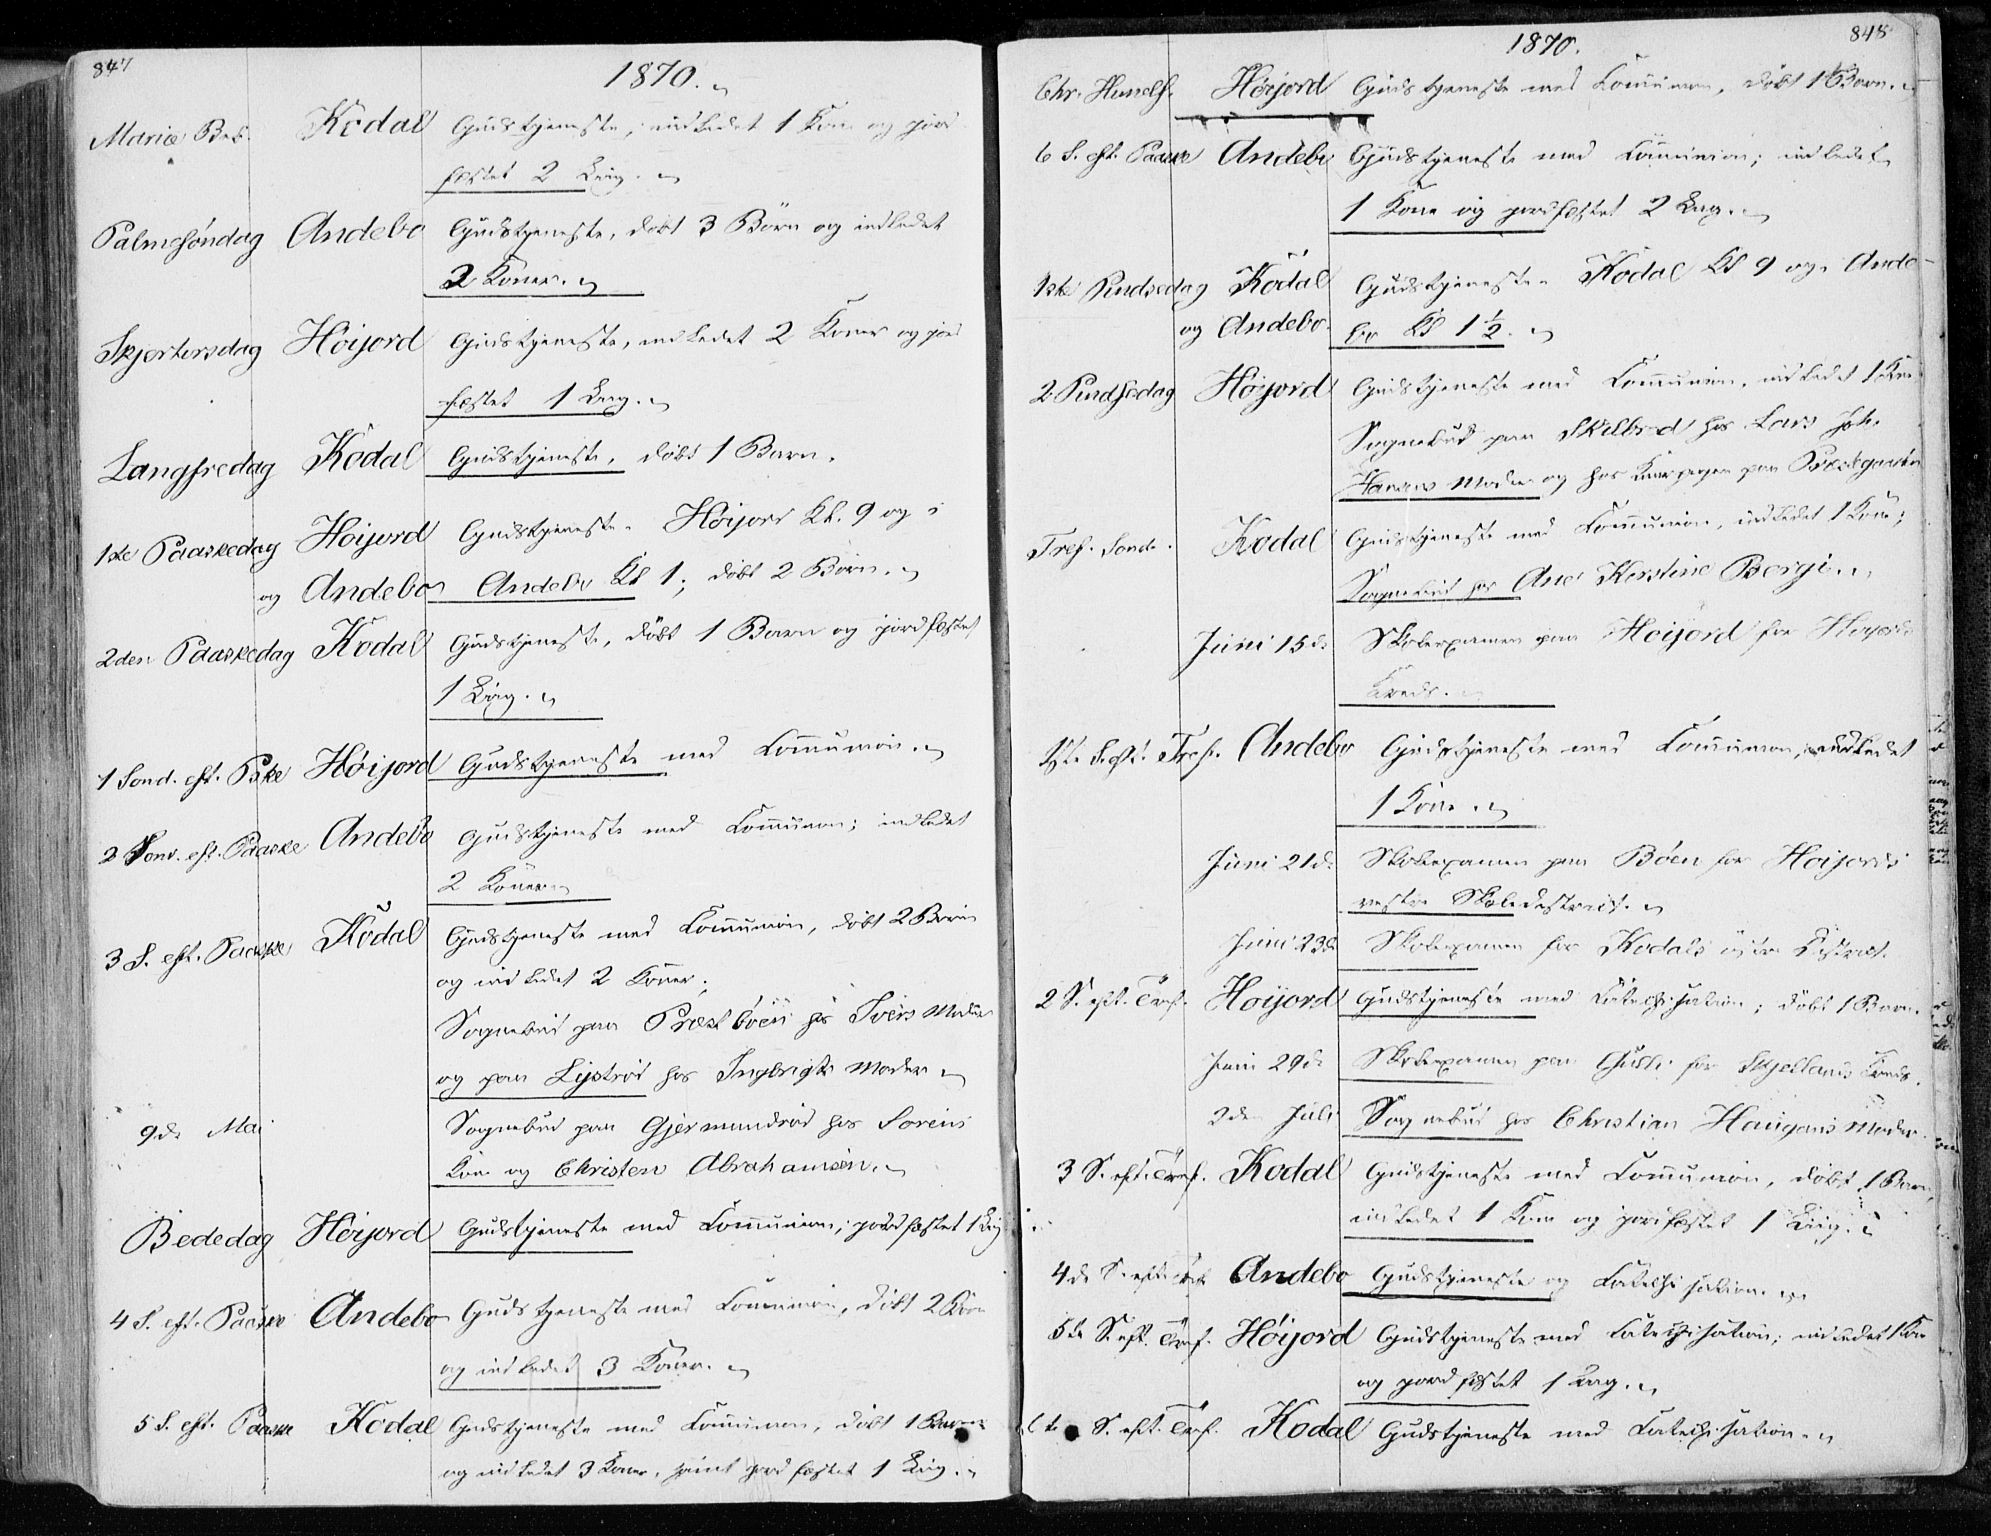 847
1870.
Mariæ Beb. Kodal Gudstjeneste, indledet 1 Kone og jord-
fæstet 2 Liig.
Palmesöndag Andebo Gudstjeneste, döbt 3 Börn og indledet
3 Koner.
Skjertorsdag Höijord Gudstjeneste, indledet 2 Koner og jord
fæstet 1 Liig.
Langfredag Kodal Gudstjeneste, döbt 1 Barn.
1ste Paaskedag Höijord Gudstjeneste i Höijord Kl. 9 og i
og Andebo Andebo Kl 1; döbt 2 Börn.
2den Paaskedag Kodal Gudstjeneste, döbt 1 Barn og jordfæstet
1 Liig.
1 Sond. eft. Paaske Höijord Gudstjeneste med Communion.
2 Sond. eft. Paaske Andebo Gudstjeneste med Communion; indledet
2 Koner
3 S. eft. Paaske Kodal Gudstjeneste med Communion, döbt 2 Börn
og indledet 2 Koner;
Sognebud paa Præstböen hos Ivers Moder
og paa Lyströd hos Ingbrigts Moder
9de Mai Sognebud paa Gjermundröd hos Sörens
Kone og Christen Abrahamsen.
Bededag Höijord Gudstjeneste med Communion; jordfæstet 1 Liig
4 S. eft. Paaske Andebo Gudstjeneste med Communion, döbt 2 Börn
og indledet 3 Koner.
5 S. eft. Paaske Kodal Gudstjeneste med Communion, döbt 1 Barn
og indledet 3 Koner, samt jordfæstet 1 Liig.
848
1870.
Chr. Himelf. Höijord Gudstjeneste med Communion, döbt 1 Barn.
6 S. eft. Paaske Andebo Gudstjeneste med Communion; indledet
1 Kone og jordfæstet 2 Liig.
1ste Pindsedag Kodal Gudstjeneste i Kodal Kl 9 og i Ande-
og Andebo. bo Kl 1½.
2 Pindsedag Höijord Gudstjeneste med Communion, indledet 1 Kone
Sognebud paa Skilbred hos Lars Joh.
Hansens Moder og hos paa Præstegaarden
Tref. Sond. Kodal Gudstjeneste med Communion, indledet 1 Kone;
Sognebud hos Ane Kirstine Bergi.
Juni 15de Skoleexamen paa Höijord for Höijords
Kreds.
1ste S. eft. Tref. Andebo Gudstjeneste med Communion, indledet
1 Kone.
Juni 21de Skoleexamen paa Böen for Höijords
vestre Skoledistrict.
Juni 23de Skoleexamen for Kodals östre District.
2 S. eft. Tref. Höijord Gudstjeneste med Catechisation; döbt 1 Barn.
Juni 29de Skoleexamen paa Gulli for Skjellands Kreds.
2den Juli Sognebud hos Christian Haugans Moder.
3 S. eft. Tref. Kodal Gudstjeneste med Communion, döbt 1 Barn,
indledet 1 Kone og jordfæstet 1 Liig.
4de S. eft. Tref. Andebo Gudstjeneste og Catechisation.
5te S. eft. Tref. Höijord Gudstjeneste med Catechisation; indledet 1 Kone
og jordfæstet 1 Liig.
6te S. eft. Tref. Kodal Gudstjeneste med Catechisation.